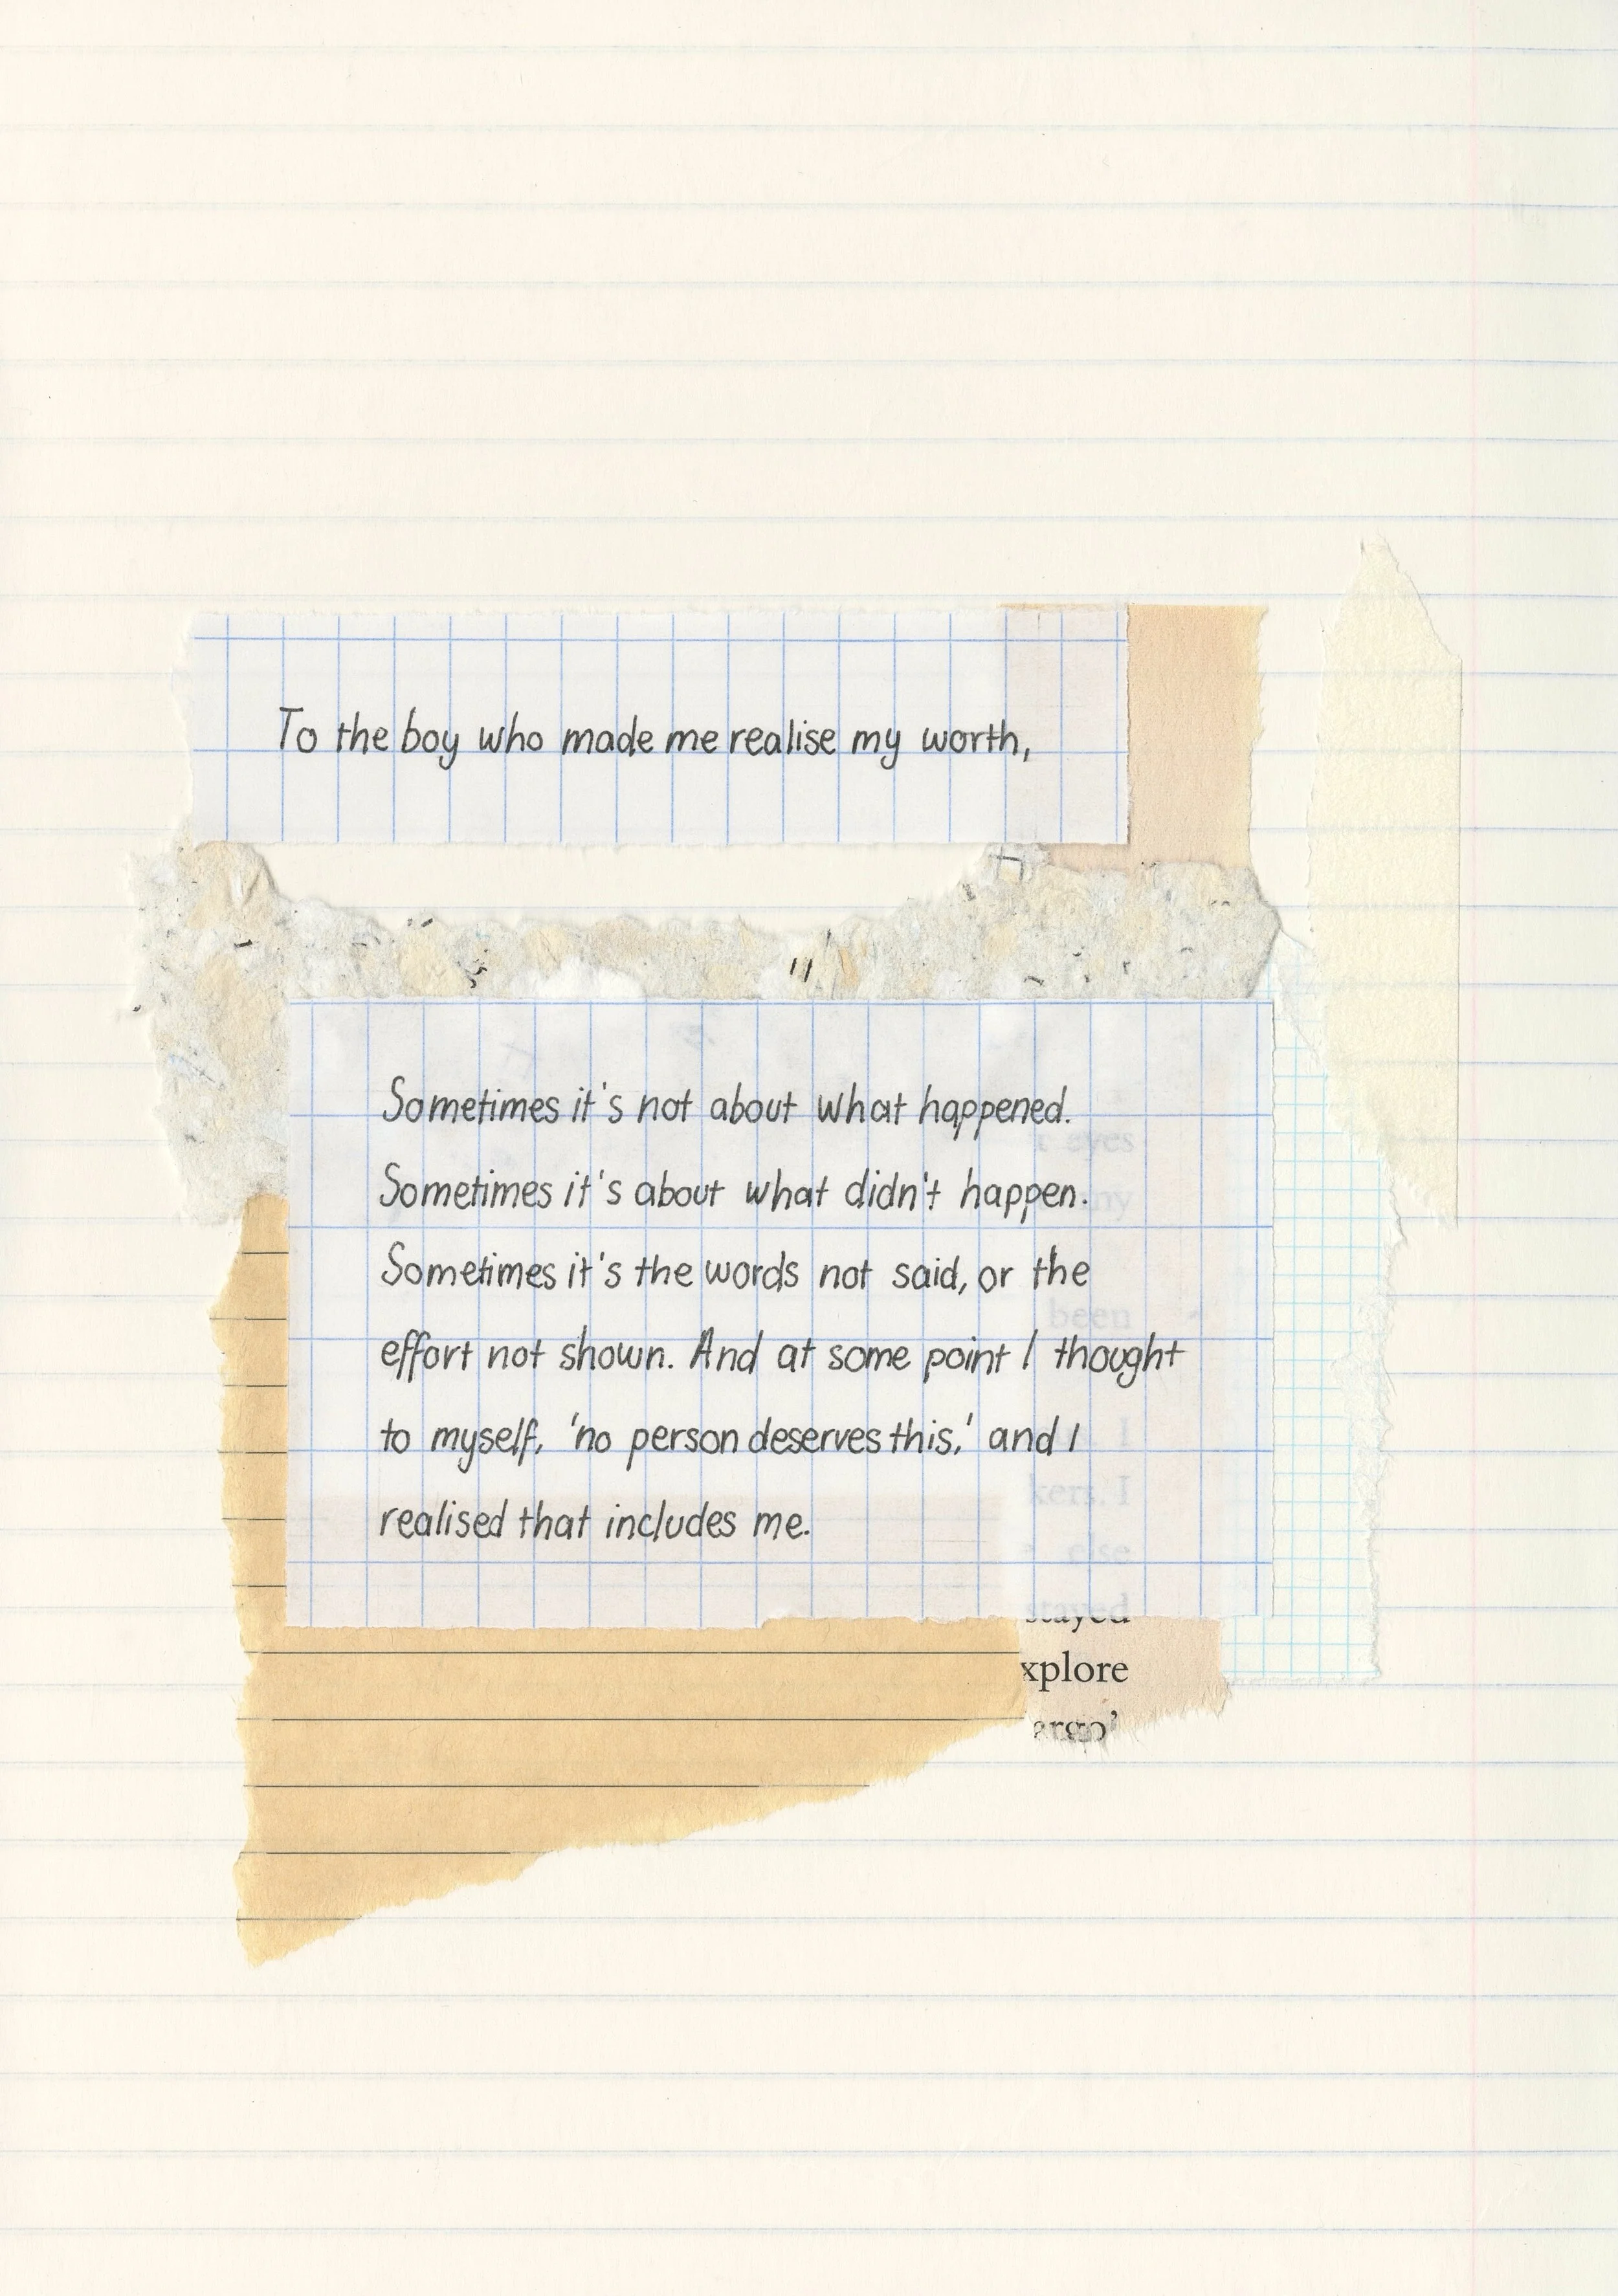 To the boy who made me realise my worth,
Sometimes it's not about what happened.
Sometimes it's about what didn't happen.
Sometimes it's the words not said, or the
effort not shown. And at some point I thought
to myself, 'no person deserves this,' and I
realised that includes me.
eyes
my
been
I
I
else
stayed